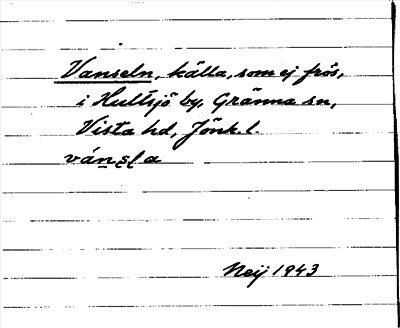 Vanseln, källa, som ej frös,
i Hultsjö by, Gränna sn,
Vista hd, Jönk. l.
ván̲s̥l̥a
Neij 1943